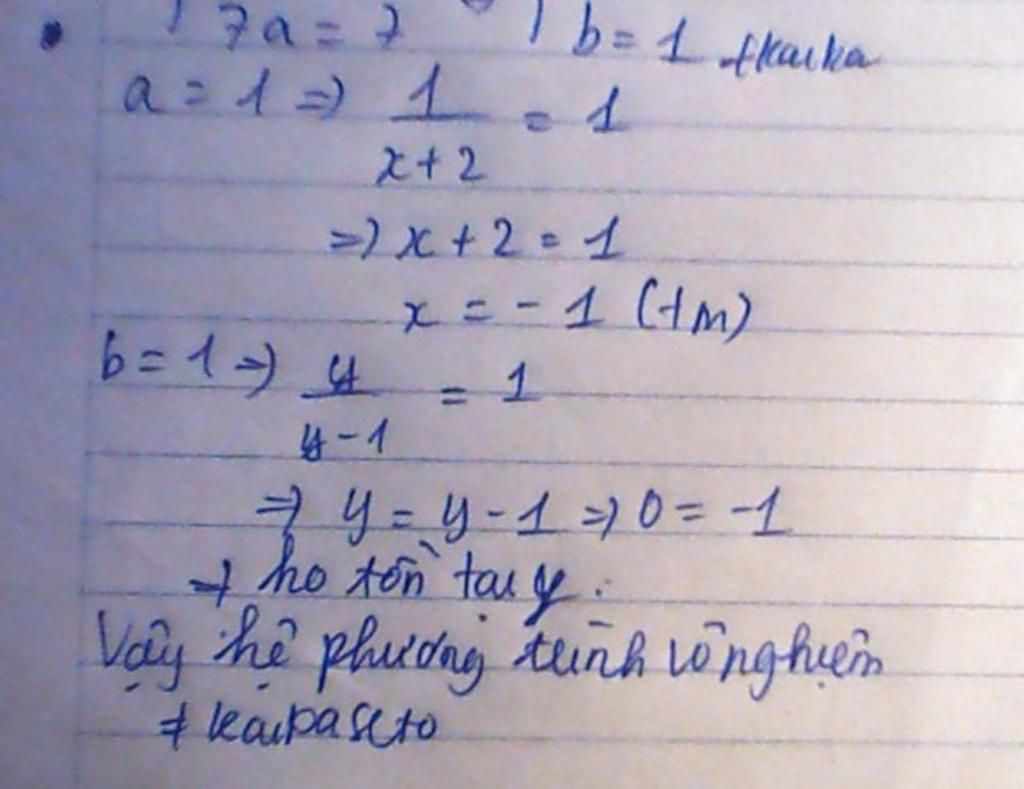 7a = 7 b = 1
a = 1 => 1/(x+2) = 1
=> x + 2 = 1
x = -1 (tm)
b = 1 => y/(y-1) = 1
=> y = y - 1 => 0 = -1
→ ko tồn tại y.
Vậy hệ phương trình vô nghiệm